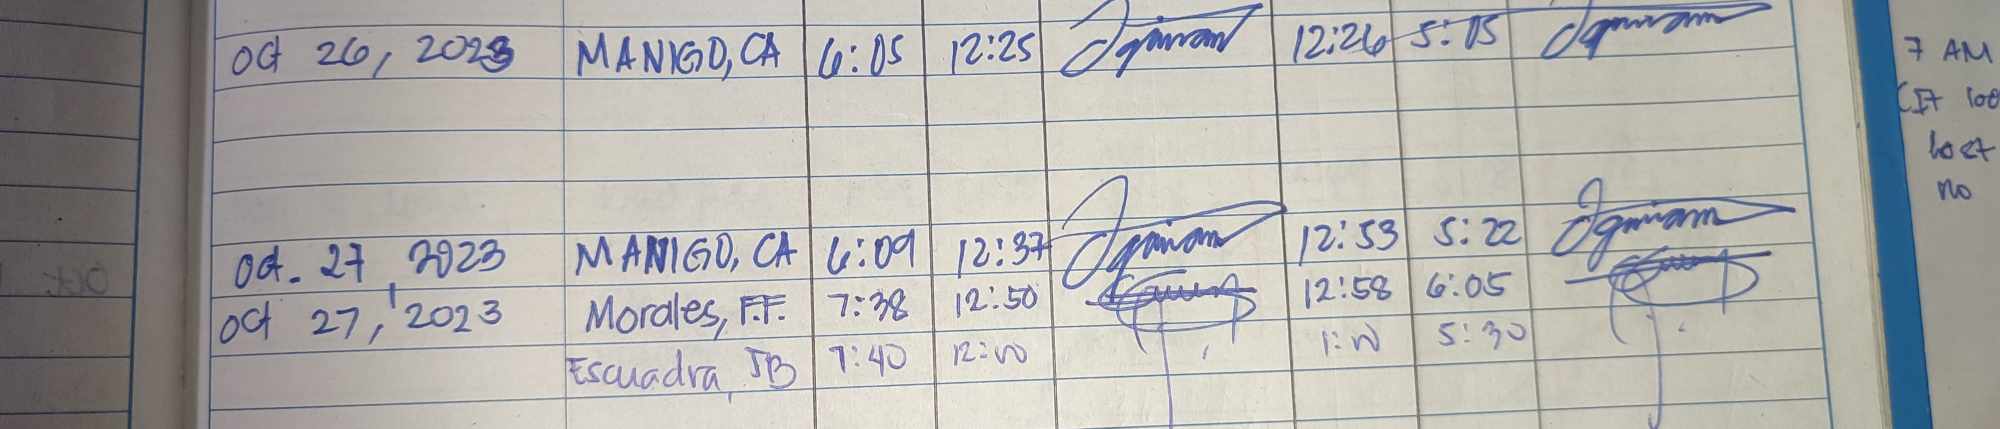 Oct 26, 2023 MANIGO, CA 6:05 12:25 12:26 5:05
Oct. 27, 2023 MANIGO, CA 6:09 12:37 12:53 5:22
Oct 27, 2023 Morales, F.F. 7:38 12:50 12:58 6:05
Escuadra, JB 7:40 12:00 1:00 5:30
7 AM
lost
no